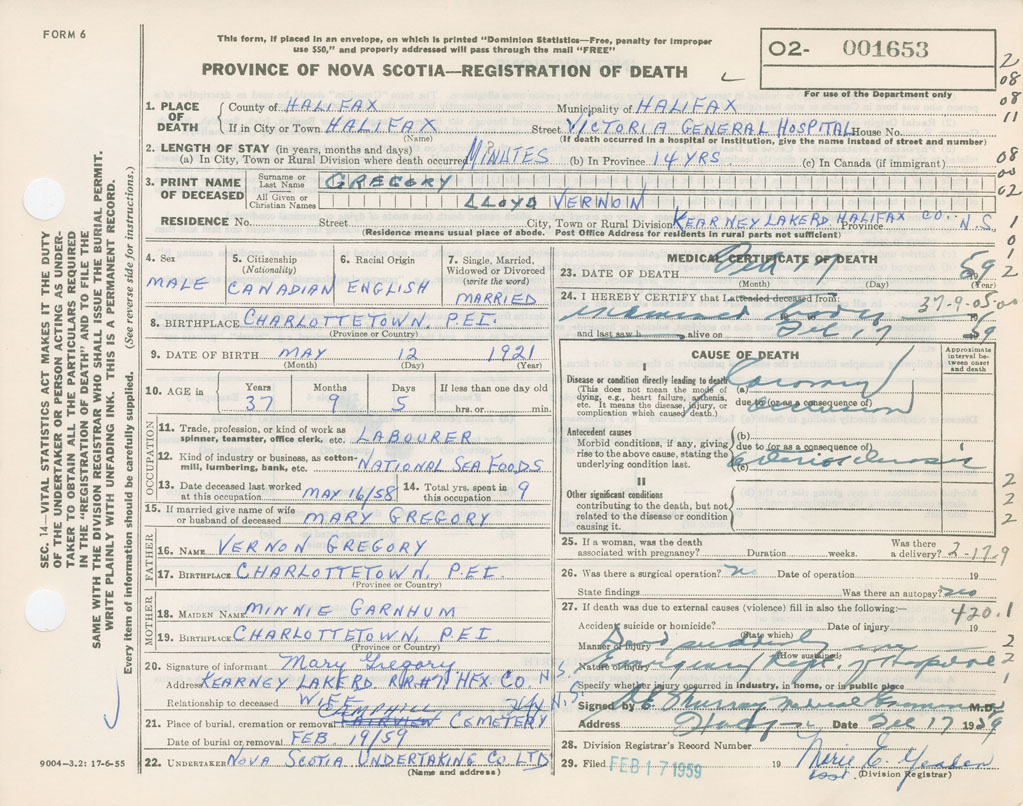 FORM 6
This form, if placed in an envelope, on which is printed "Dominion Statistics—Free, penalty for improper
use $50," and properly addressed will pass through the mail "FREE"
PROVINCE OF NOVA SCOTIA—REGISTRATION OF DEATH
O2- 001653
For use of the Department only
2
08
08
11
1. PLACE OF DEATH County of HALIFAX Municipality of HALIFAX
If in City or Town HALIFAX Street VICTORIA GENERAL HOSPITAL House No.
(Name) (If death occurred in a hospital or institution, give the name instead of street and number)
2. LENGTH OF STAY (in years, months and days)
(a) In City, Town or Rural Division where death occurred MINUTES (b) In Province 14 YRS. (c) In Canada (if immigrant)
08
00
02
3. PRINT NAME OF DECEASED Surname or Last Name GREGORY
All Given or Christian Names LLOYD VERNON
RESIDENCE No. Street City, Town or Rural Division KEARNEY LAKE RD HALIFAX CO. Province N.S.
(Residence means usual place of abode. Post Office Address for residents in rural parts not sufficient)
1
0
1
2
4. Sex MALE
5. Citizenship (Nationality) CANADIAN
6. Racial Origin ENGLISH
7. Single, Married, Widowed or Divorced (write the word) MARRIED
8. BIRTHPLACE CHARLOTTETOWN. P.E.I.
(Province or Country)
9. DATE OF BIRTH MAY 12 1921
(Month) (Day) (Year)
10. AGE in Years Months Days If less than one day old
37 9 5 hrs. or min.
OCCUPATION
11. Trade, profession, or kind of work as spinner, teamster, office clerk, etc. LABOURER
12. Kind of industry or business, as cotton-mill, lumbering, bank, etc. NATIONAL SEA FOODS
13. Date deceased last worked at this occupation MAY 16/58 14. Total yrs. spent in this occupation 9
15. If married give name of wife or husband of deceased MARY GREGORY
FATHER
16. NAME VERNON GREGORY
17. BIRTHPLACE CHARLOTTETOWN, P.E.I.
(Province or Country)
MOTHER
18. MAIDEN NAME MINNIE GARNHUM
19. BIRTHPLACE CHARLOTTETOWN, P.E.I
(Province or Country)
20. Signature of informant Mary Gregory
Address KEARNEY LAKE RD HFX. CO N.S.
Relationship to deceased WIFE N.S.
21. Place of burial, cremation or removal CEMETERY
Date of burial or removal FEB. 19/59
22. UNDERTAKER NOVA SCOTIA UNDERTAKING CO. LTD
(Name and address)
MEDICAL CERTIFICATE OF DEATH
23. DATE OF DEATH 17 1959
(Month) (Day) (Year)
24. I HEREBY CERTIFY that I attended deceased from: 37-9-05
examined body 19
and last saw h alive on Feb 17 59
CAUSE OF DEATH
Approximate interval between onset and death
I
Disease or condition directly leading to death
(This does not mean the mode of dying, e.g., heart failure, asthenia, etc. It means the disease, injury, or complication which caused death.)
(a) Coronary
due to (or as a consequence of) occlusion
Antecedent causes
Morbid conditions, if any, giving rise to the above cause, stating the underlying condition last.
(b)
due to (or as a consequence of)
(c)
II
Other significant conditions
contributing to the death, but not related to the disease or condition causing it.
2
2
2
25. If a woman, was the death associated with pregnancy? Duration weeks. Was there a delivery? 2-17-9
26. Was there a surgical operation? no Date of operation 19
State findings Was there an autopsy? no
27. If death was due to external causes (violence) fill in also the following:— 420.1
Accident, suicide or homicide? Date of injury 19
(State which)
Manner of injury Died suddenly in
(How sustained)
Nature of injury Emergency Dept. of hospital
2
2
1
Specify whether injury occurred in industry, in home, or in public place
Signed by Murray Medical Examiner M.D.
Address Date Feb 17 1959
28. Division Registrar's Record Number
29. Filed FEB 17 1959 19 Marie E.
(Division Registrar)
SEC. 14—VITAL STATISTICS ACT MAKES IT THE DUTY
OF THE UNDERTAKER OR PERSON ACTING AS UNDER-
TAKER TO OBTAIN ALL THE PARTICULARS REQUIRED
IN THE "REGISTRATION OF DEATH" AND TO FILE THE
SAME WITH THE DIVISION REGISTRAR WHO SHALL ISSUE THE BURIAL PERMIT.
WRITE PLAINLY WITH UNFADING INK. THIS IS A PERMANENT RECORD.
Every item of information should be carefully supplied. (See reverse side for instructions.)
9004-3.2: 17-6-55